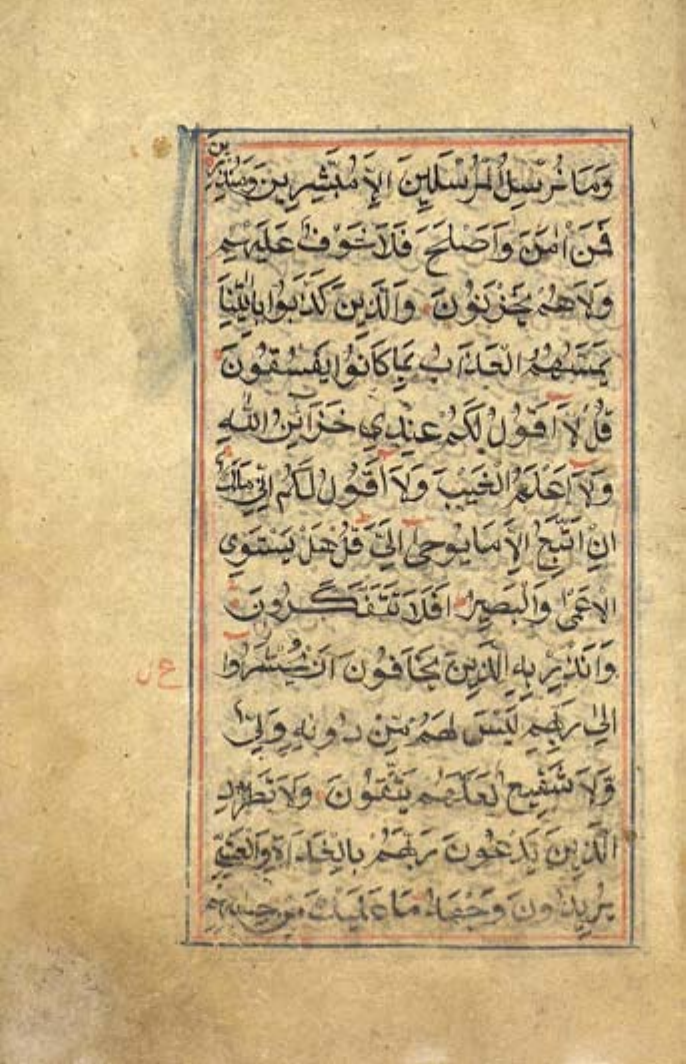 وَمَا نُرْسِلُ الْمُرْسَلِينَ اِلَّا مُبَشِّرِينَ وَمُنْذِرِينَ
فَمَنْ اٰمَنَ وَاَصْلَحَ فَلَا خَوْفٌ عَلَيْهِمْ
وَلَا هُمْ يَحْزَنُونَ وَالَّذِينَ كَذَّبُوا بِاٰيَاتِنَا
يَمَسُّهُمُ الْعَذَابُ بِمَا كَانُوا يَفْسُقُونَ
قُلْ لَا اَقُولُ لَكُمْ عِنْدِي خَزَائِنُ اللّٰهِ
وَلَا اَعْلَمُ الْغَيْبَ وَلَا اَقُولُ لَكُمْ اِنِّي مَلَكٌ
اِنْ اَتَّبِعُ اِلَّا مَا يُوحٰى اِلَيَّ قُلْ هَلْ يَسْتَوِي
الْاَعْمٰى وَالْبَصِيرُ اَفَلَا تَتَفَكَّرُونَ
وَاَنْذِرْ بِهِ الَّذِينَ يَخَافُونَ اَنْ يُحْشَرُوا
اِلٰى رَبِّهِمْ لَيْسَ لَهُمْ مِنْ دُونِهِ وَلِيٌّ
وَلَا شَفِيعٌ لَعَلَّهُمْ يَتَّقُونَ وَلَا تَطْرُدِ
الَّذِينَ يَدْعُونَ رَبَّهُمْ بِالْغَدَاةِ وَالْعَشِيِّ
يُرِيدُونَ وَجْهَهُ مَا عَلَيْكَ مِنْ حِسَابِهِمْ